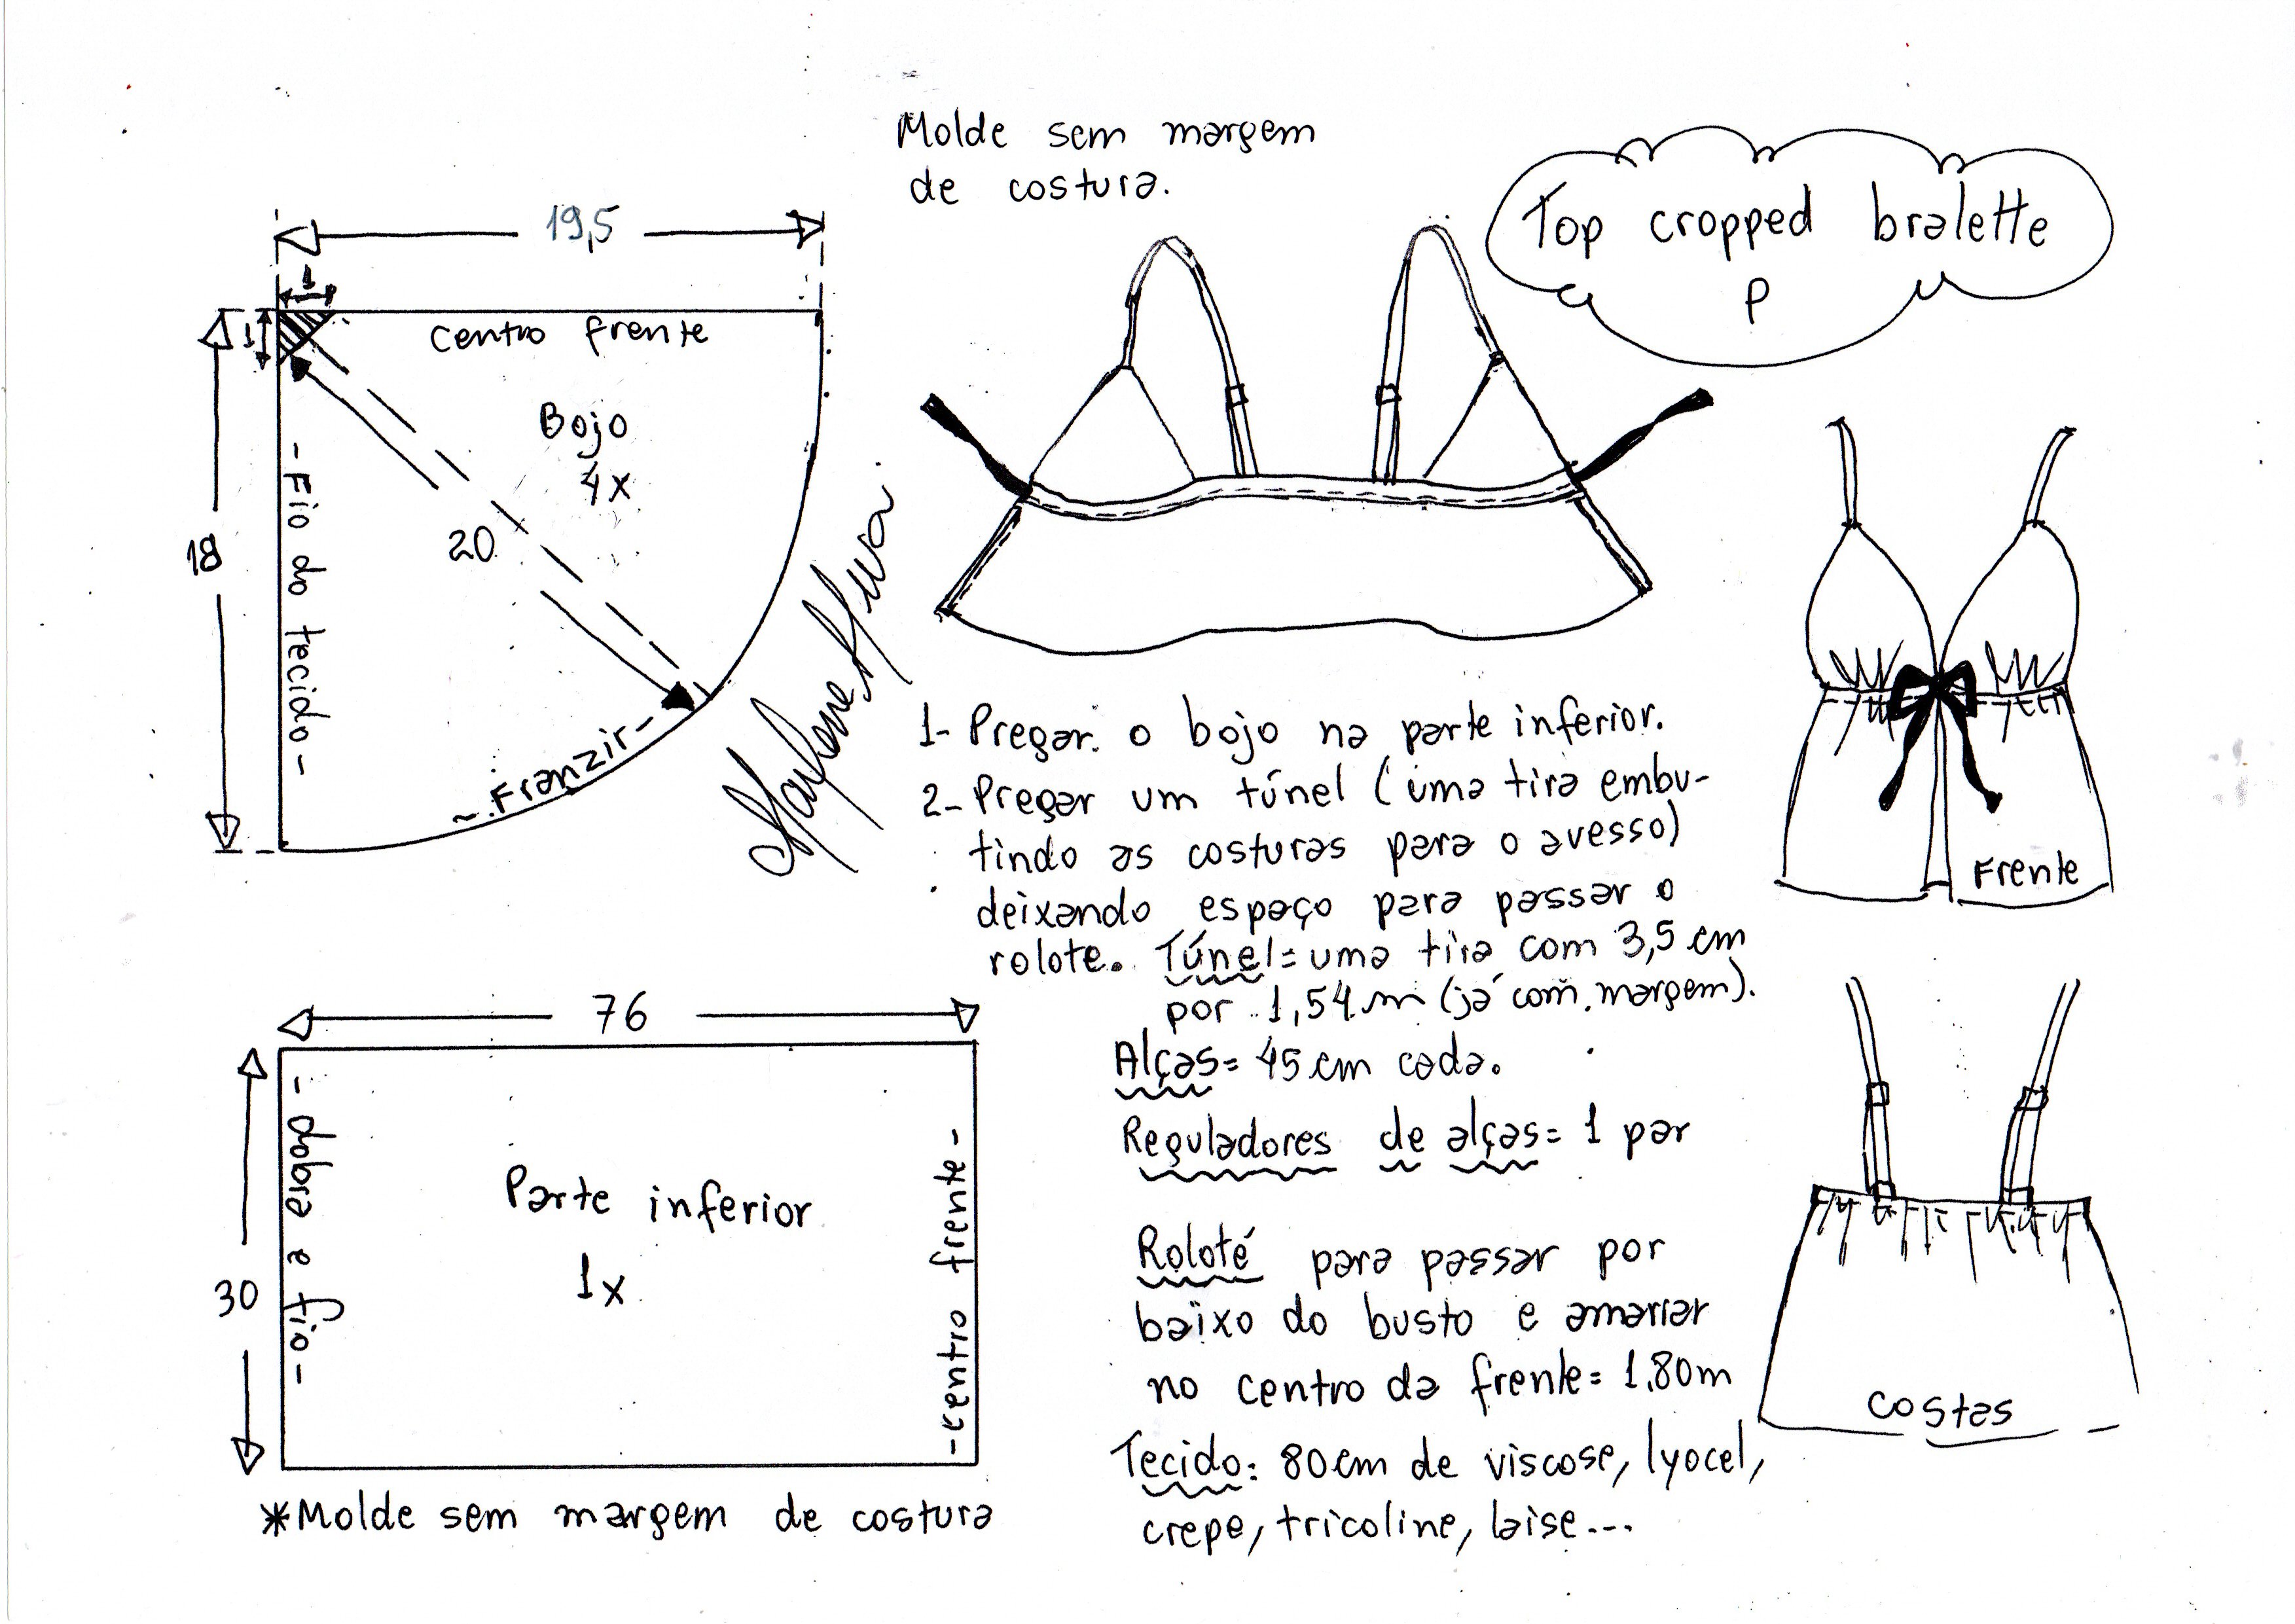 Molde sem margem
de costura.
Top cropped bralette
P
19,5
1
1
Centro frente
Bojo
4x
18
20
-Fio do tecido-
-Franzir-
1- Pregar o bojo na parte inferior.
2- Pregar um túnel (uma tira embu-
tindo as costuras para o avesso)
deixando espaço para passar o
rolote. Túnel= uma tira com 3,5 cm
por 1,54 m (já com margem).
Alças= 45 cm cada.
Reguladores de alças= 1 par
Roloté para passar por
baixo do busto e amarrar
no centro da frente= 1,80m
Tecido: 80cm de viscose, lyocel,
crepe, tricoline, laise...
Frente
Costas
76
30
-dobra e fio-
Parte inferior
1x
-centro frente-
*Molde sem margem de costura